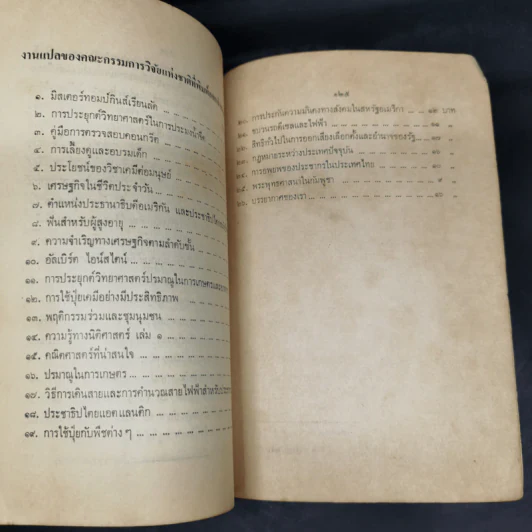 งานแปลของคณะกรรมการวิจัยแห่งชาติที่พิมพ์
๑. มิสเตอร์ทอมป์กินส์เรียนลัด ...
๒. การประยุกต์วิทยาศาสตร์ในการประมงน้ำจืด
๓. คู่มือการตรวจสอบคอนกรีต ...
๔. การเลี้ยงดูและอบรมเด็ก ...
๕. ประโยชน์ของวิชาเคมีต่อมนุษย์ ...
๖. เศรษฐกิจในชีวิตประจำวัน ... ...
๗. ตำแหน่งประธานาธิบดีอเมริกัน และประชาธิปไตย
๘. ฟันสำหรับผู้สูงอายุ ... ... ...
๙. ความจำเริญทางเศรษฐกิจตามลำดับขั้น ...
๑๐. อัลเบิร์ต ไอน์สไตน์ ... ... ...
๑๑. การประยุกต์วิทยาศาสตร์ปรมาณูในการเกษตรและ
๑๒. การใช้ปุ๋ยเคมีอย่างมีประสิทธิภาพ ...
๑๓. พฤติกรรมร่วมและชุมนุมชน ... ...
๑๔. ความรู้ทางนิติศาสตร์ เล่ม ๑ ... ...
๑๕. คณิตศาสตร์ที่น่าสนใจ ... ... ...
๑๖. ปรมาณูในการเกษตร ... ... ...
๑๗. วิธีการเดินสายและการคำนวณสายไฟฟ้าสำหรับ
๑๘. ประชาธิปไตยแอตแลนติก ... ...
๑๙. การใช้ปุ๋ยกับพืชต่าง ๆ ... ... ...
๑๒๕
๒๐. การประกันความมั่นคงทางสังคมในสหรัฐอเมริกา ... ๑๒ บาท
๒๑. ขบวนรถดีเซลและไฟฟ้า ... ... ...
๒๒. สิทธิทั่วไปในการออกเสียงเลือกตั้งและอำนาจของรัฐ ...
๒๓. กฎหมายระหว่างประเทศปัจจุบัน ... ...
๒๔. การอพยพของประชากรในประเทศไทย ...
๒๕. พระพุทธศาสนาในกัมพูชา ... ... ...
๒๖. บรรยากาศของเรา ... ... ...